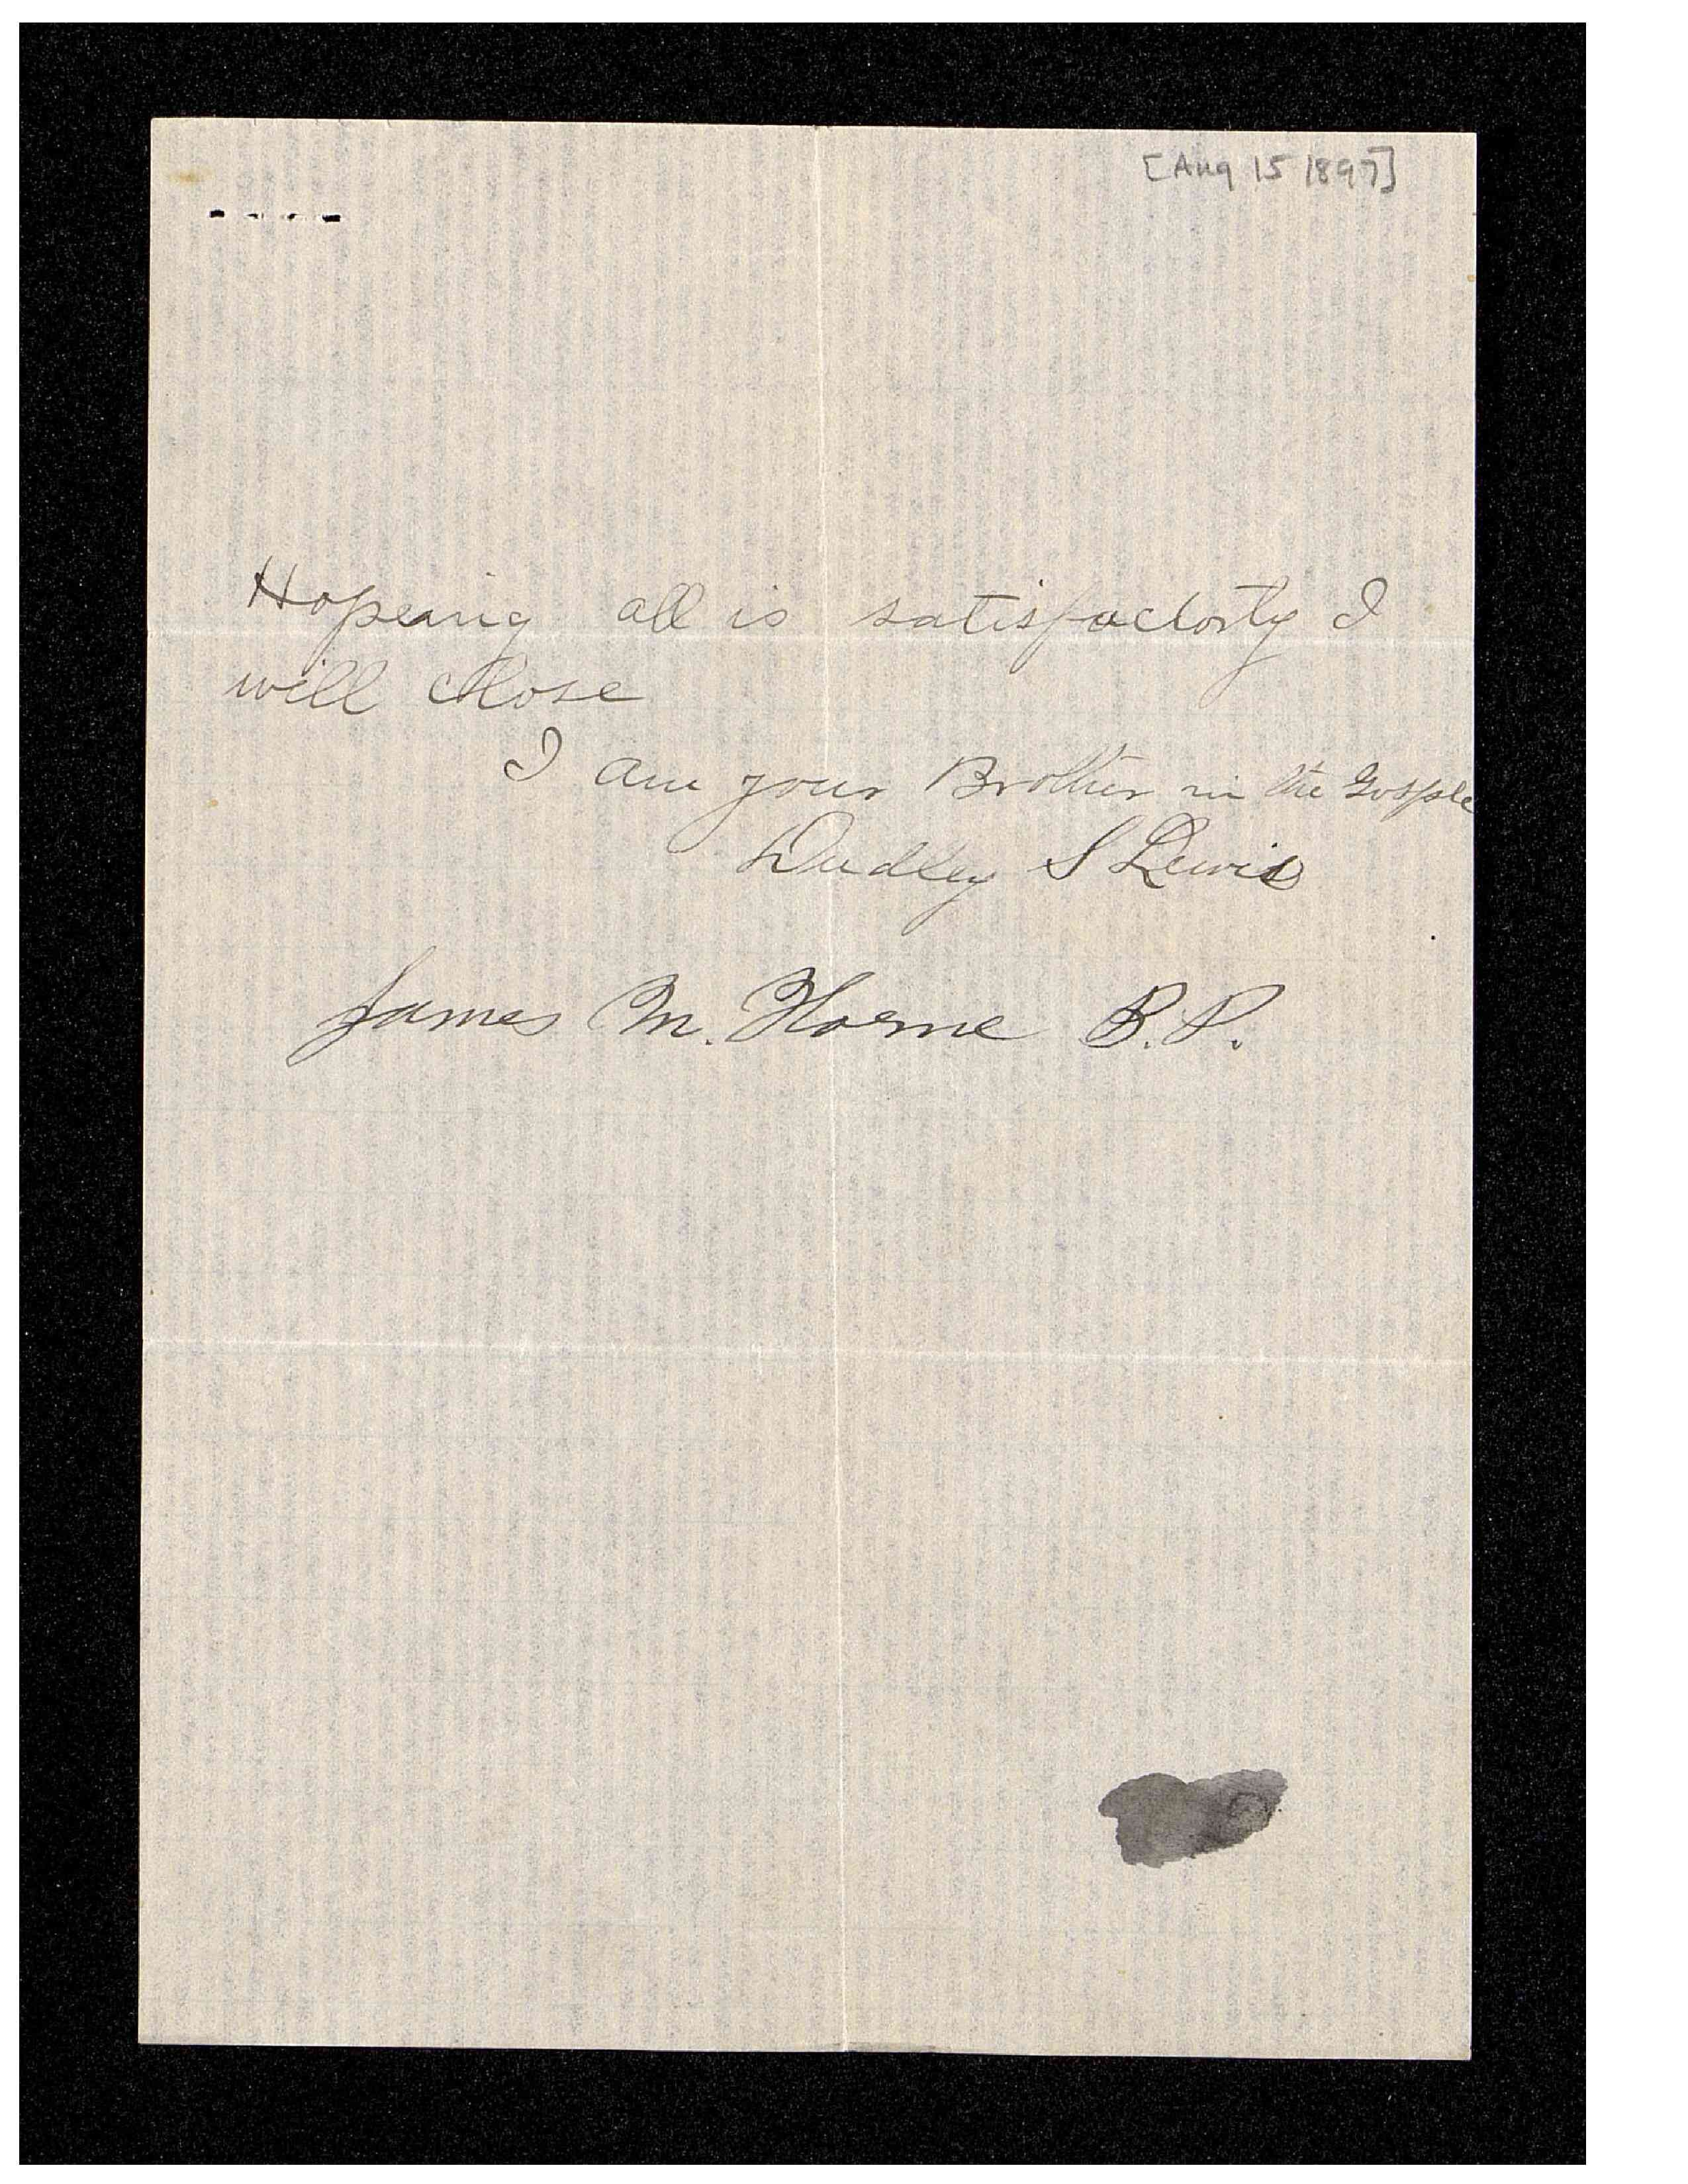 [Aug 15 1897]
Hopeing all is satisfactorty I
will close
I am your Brother in the Gospple
Dudley S Lewis
James M. Horne B.P.